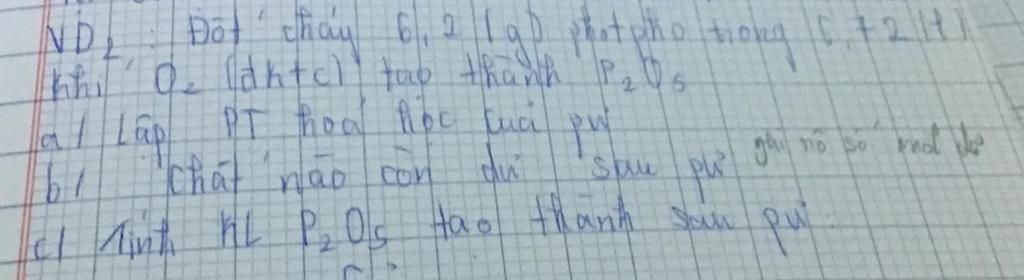 VD2: Đốt cháy 6,2 (g) photpho trong 6,72 (l)
khí O2 (đktc) tạo thành P2O5
a/ Lập PT hoá học của pư
b/ chất nào còn dư sau pư
c/ Tính KL P2O5 tạo thành sau pư